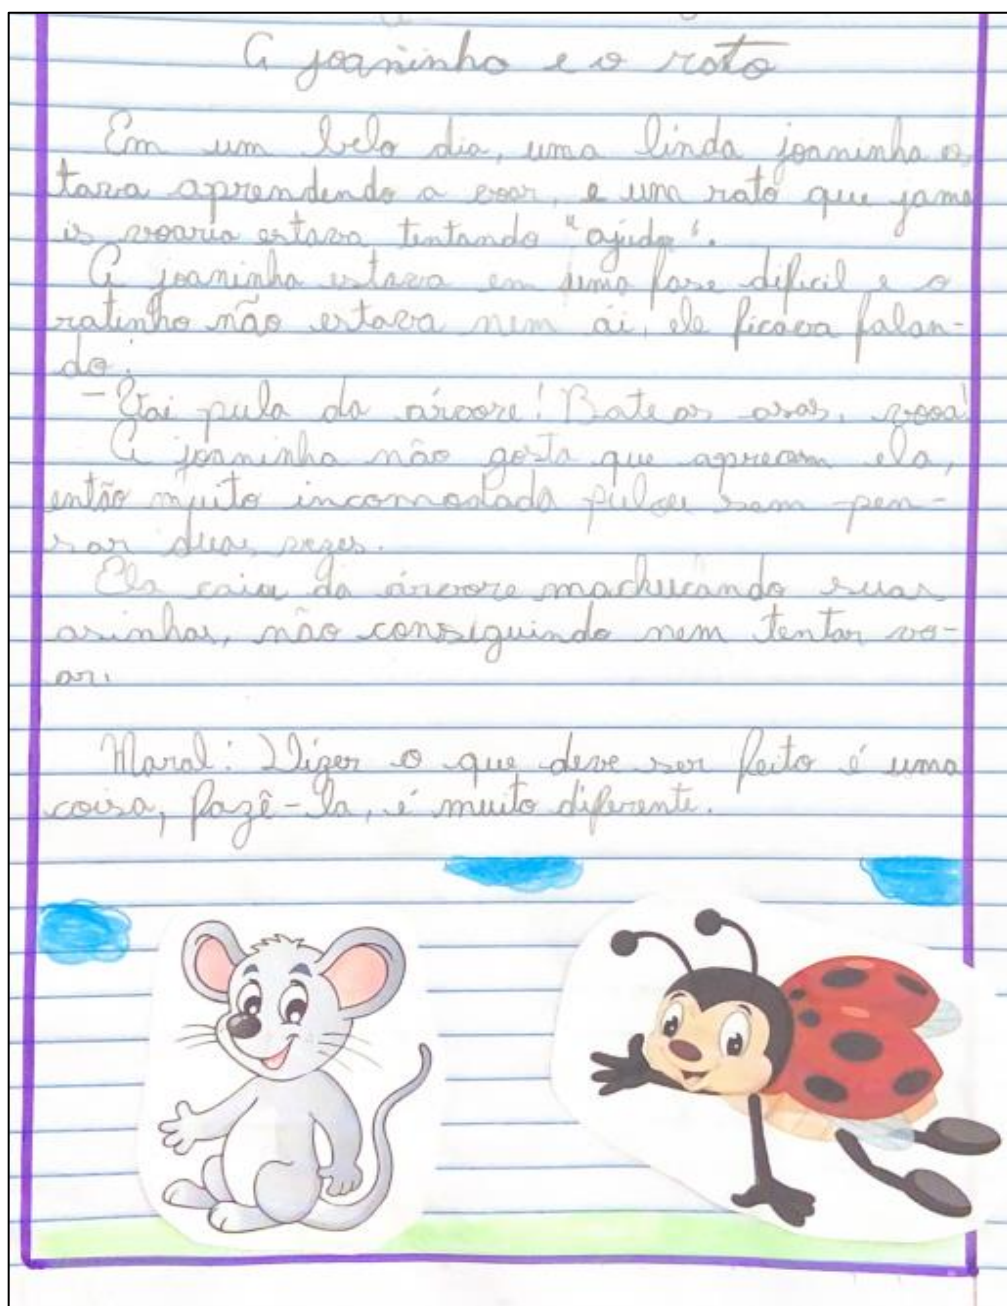 A joaninha e o rato
Em um belo dia, uma linda joaninha es
tava aprendendo a voar, e um rato que jama
is voaria estava tentando "ajuda".
A joaninha estava em uma fase dificil e o
ratinho não estava nem ái, ele ficava falan-
do:
- Vai pula da árvore! Bate as asas, vooa!
A joaninha não gosta que apressem ela,
então muito incomodada pulou sem pen-
sar duas vezes.
Ela caiu da árvore machucando suas
asinhas, não conseguindo nem tentar vo-
ar.
Moral: Dizer o que deve ser feito é uma
coisa, fazê-la, é muito diferente.